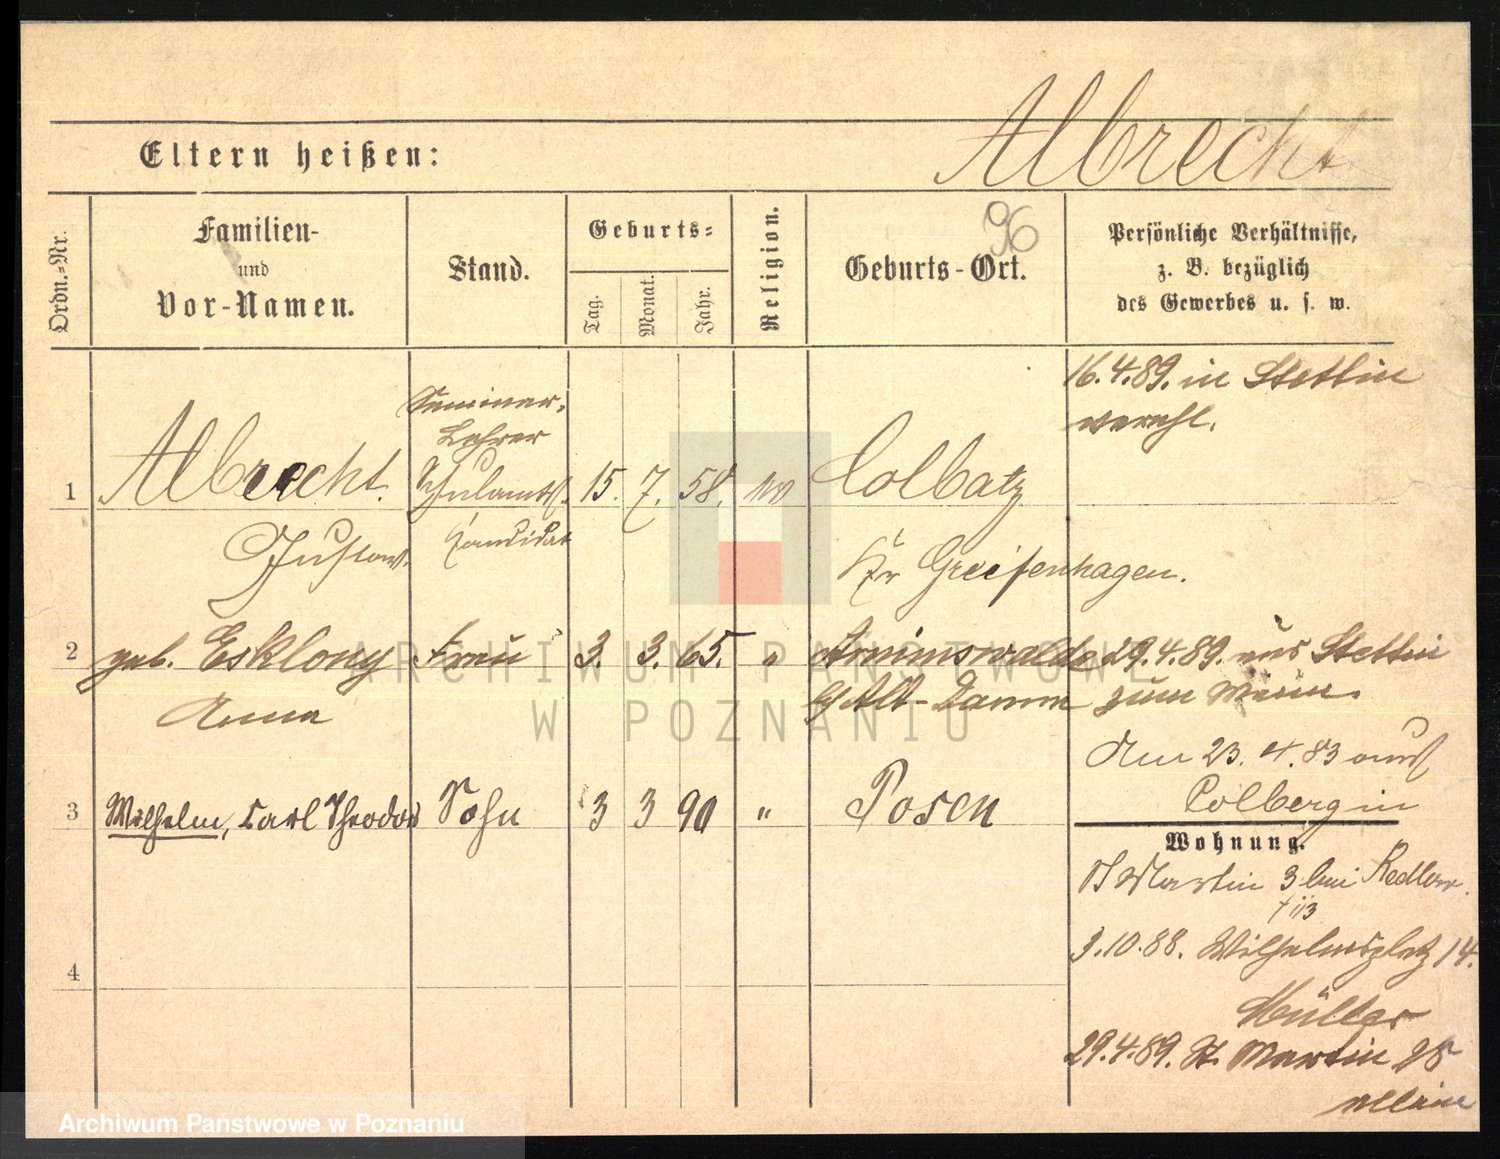 Albrecht
Eltern heißen:
96
Ordn.-Nr.
Familien-
und
Vor-Namen.
Stand.
Geburts-
Tag.
Monat.
Jahr.
Religion.
Geburts-Ort.
Persönliche Verhältnisse,
z. B. bezüglich
des Gewerbes u. s. w.
16. 4. 89. in Stettin
verehl.
Seminar-
Lehrer
1 Albrecht. Schulamts- 15. 7. 58. Colbatz
Gustav. Candidat
Kr Greifenhagen.
2 geb. Esklony Frau 3. 3. 65. " Arnimswalde 29. 4. 89. aus Stettin
Anna b/ Alt-Damm zum Mann.
Am 23. 4. 83 aus
Colberg in
3 Wilhelm, Carl Theodor Sohn 3 3 90 " Posen
Wohnung.
St Martin 3 bei Redlow.
3. 10. 88. Wilhelmsplatz 14.
Müller
4
29. 4. 89. St. Martin 28
allein
ARCHIWUM PAŃSTWOWE
W POZNANIU
Archiwum Państwowe w Poznaniu